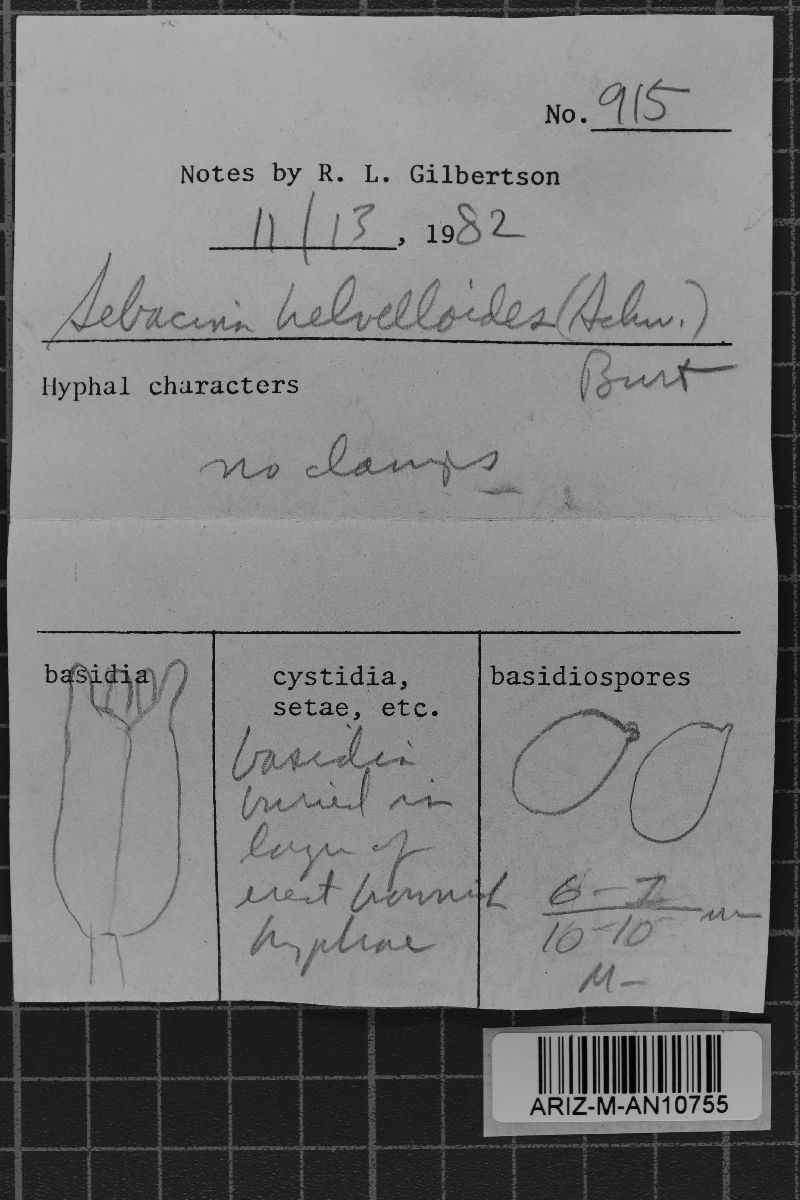 No. 915
Notes by R. L. Gilbertson
11/13, 1982
Sebacina helvelloides (Schw.)
Burt
Hyphal characters
no clamps
basidia
cystidia,
setae, etc.
basidia
buried in
layer of
erect brownish
hyphae
basidiospores
6-7
10-10
M-
ARIZ-M-AN10755